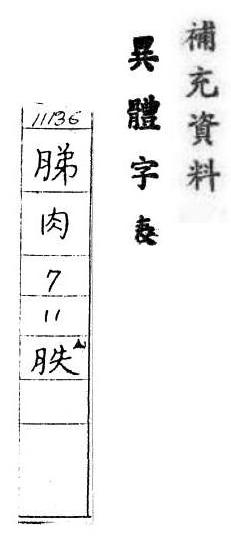 補充資料
異體字表
11136
䏲
肉
7
11
胅